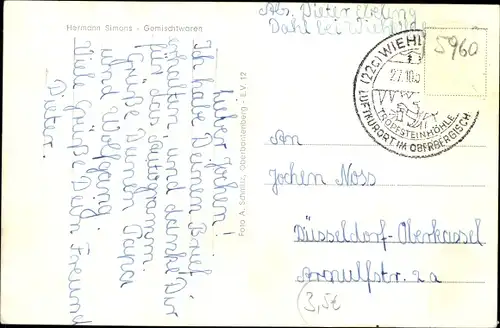 Hermann Simons - Gemischtwaren
Abs. Dieter Ebeling
Dahl bei Wiehl
Lieber Jochen!
Ich habe Deinen Brief
erhalten, und danke Dir
für das Autogramm.
Grüße Deinen Papa
und Wolfgang.
Viele Grüße Dein Freund
Dieter.
Foto A. Schmitz, Oberbantenberg - E.V. 12
(22c) WIEHL
27.10.
TROPFSTEINHÖHLE
LUFTKURORT IM OBERBERGISCH
5960
An
Jochen Noss
Düsseldorf-Oberkassel
Arnulfstr. 2a
3,5€